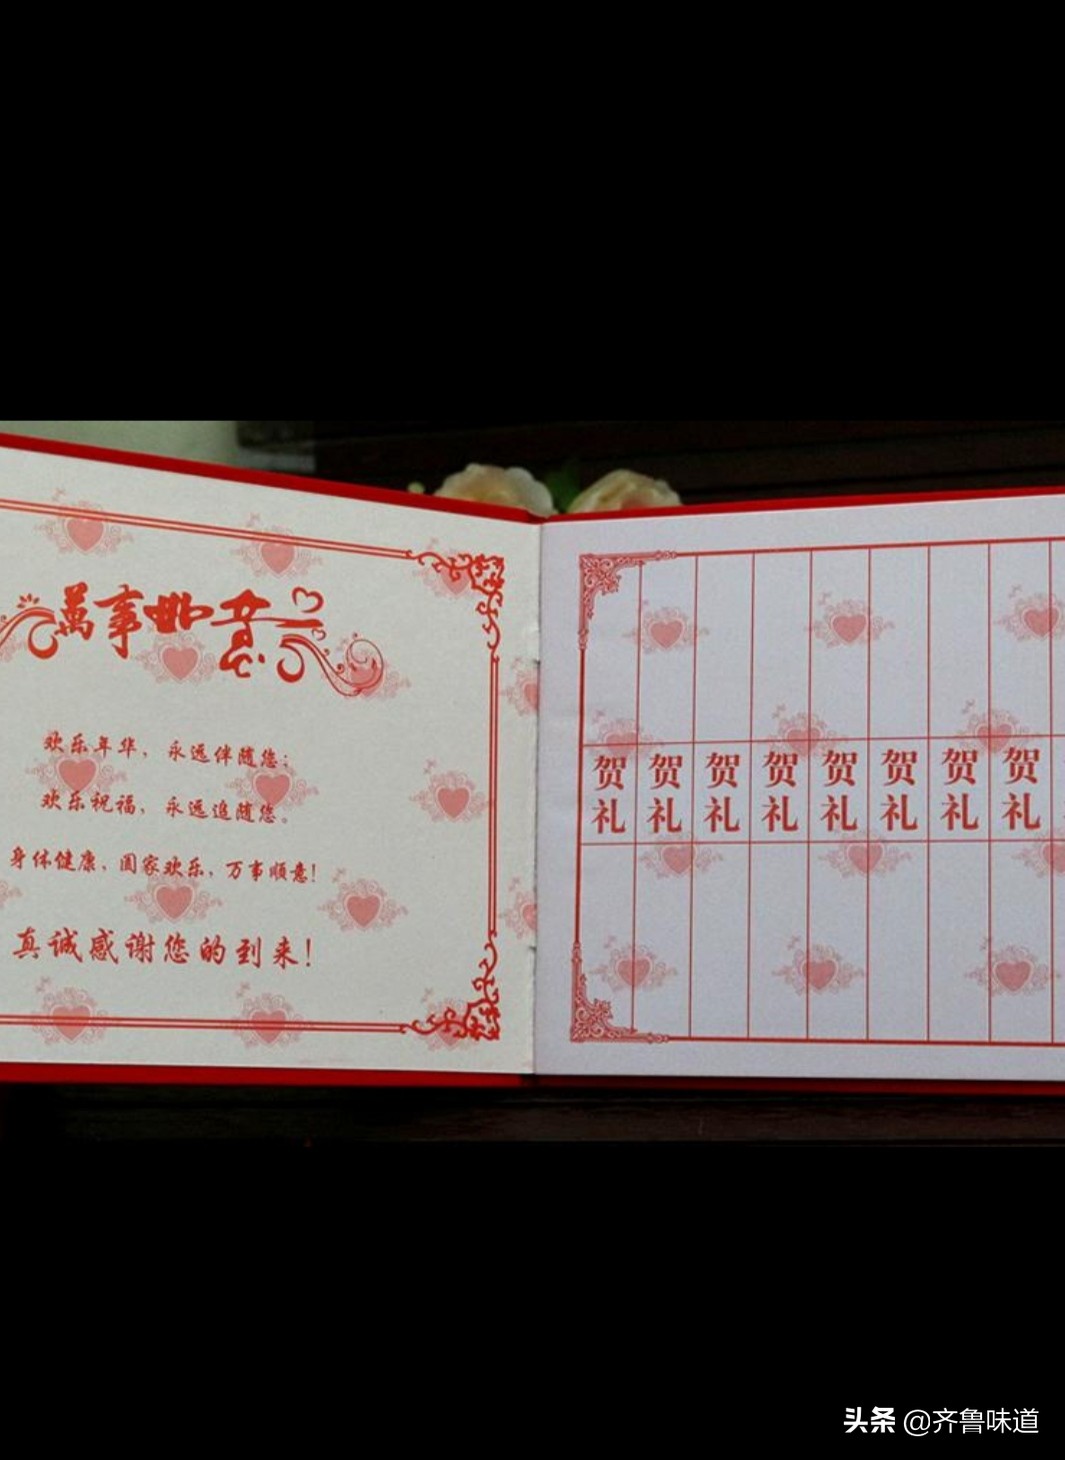 萬事如意
欢乐年华，永远伴随您；
欢乐祝福，永远追随您。
身体健康，阖家欢乐，万事顺意！
真诚感谢您的到来！
贺礼
贺礼
贺礼
贺礼
贺礼
贺礼
贺礼
贺礼
头条 @齐鲁味道